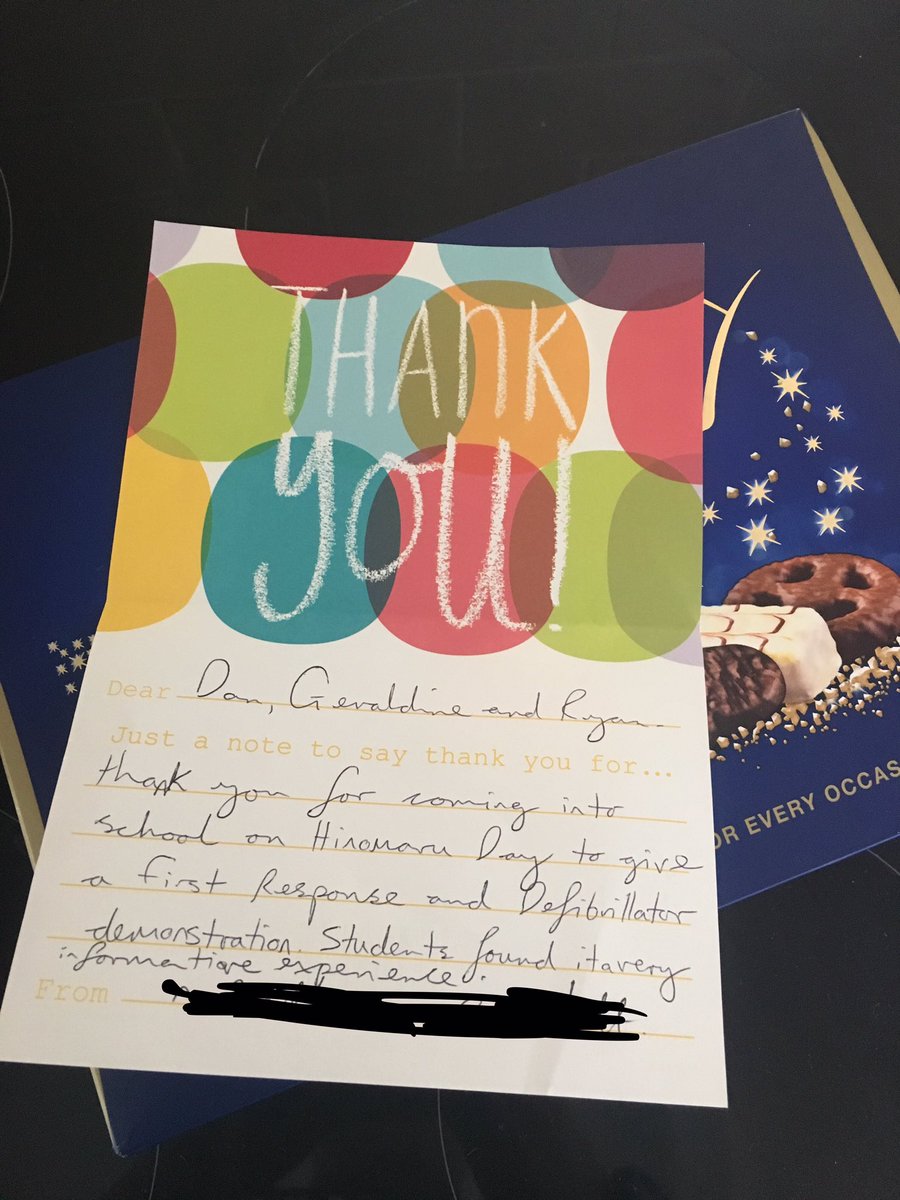 THANK
YOU!
Dear Dan, Geraldine and Ryan.
Just a note to say thank you for...
thank you for coming into
school on Hinomaru Day to give
a First Response and Defibrillator
demonstration. Students found it a very
informative experience.
From
OR EVERY OCCAS